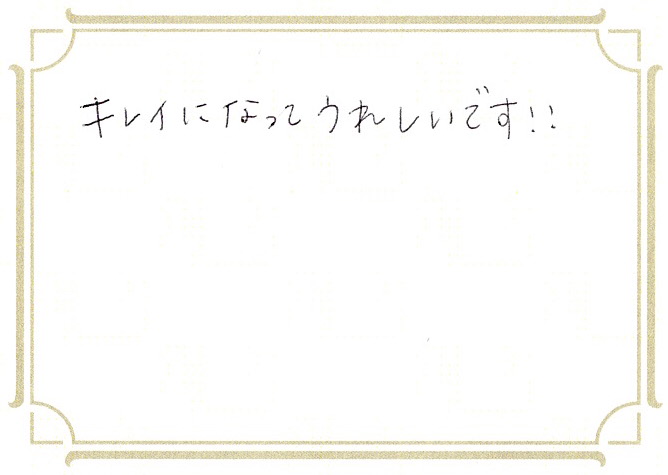 キレイになってうれしいです!!